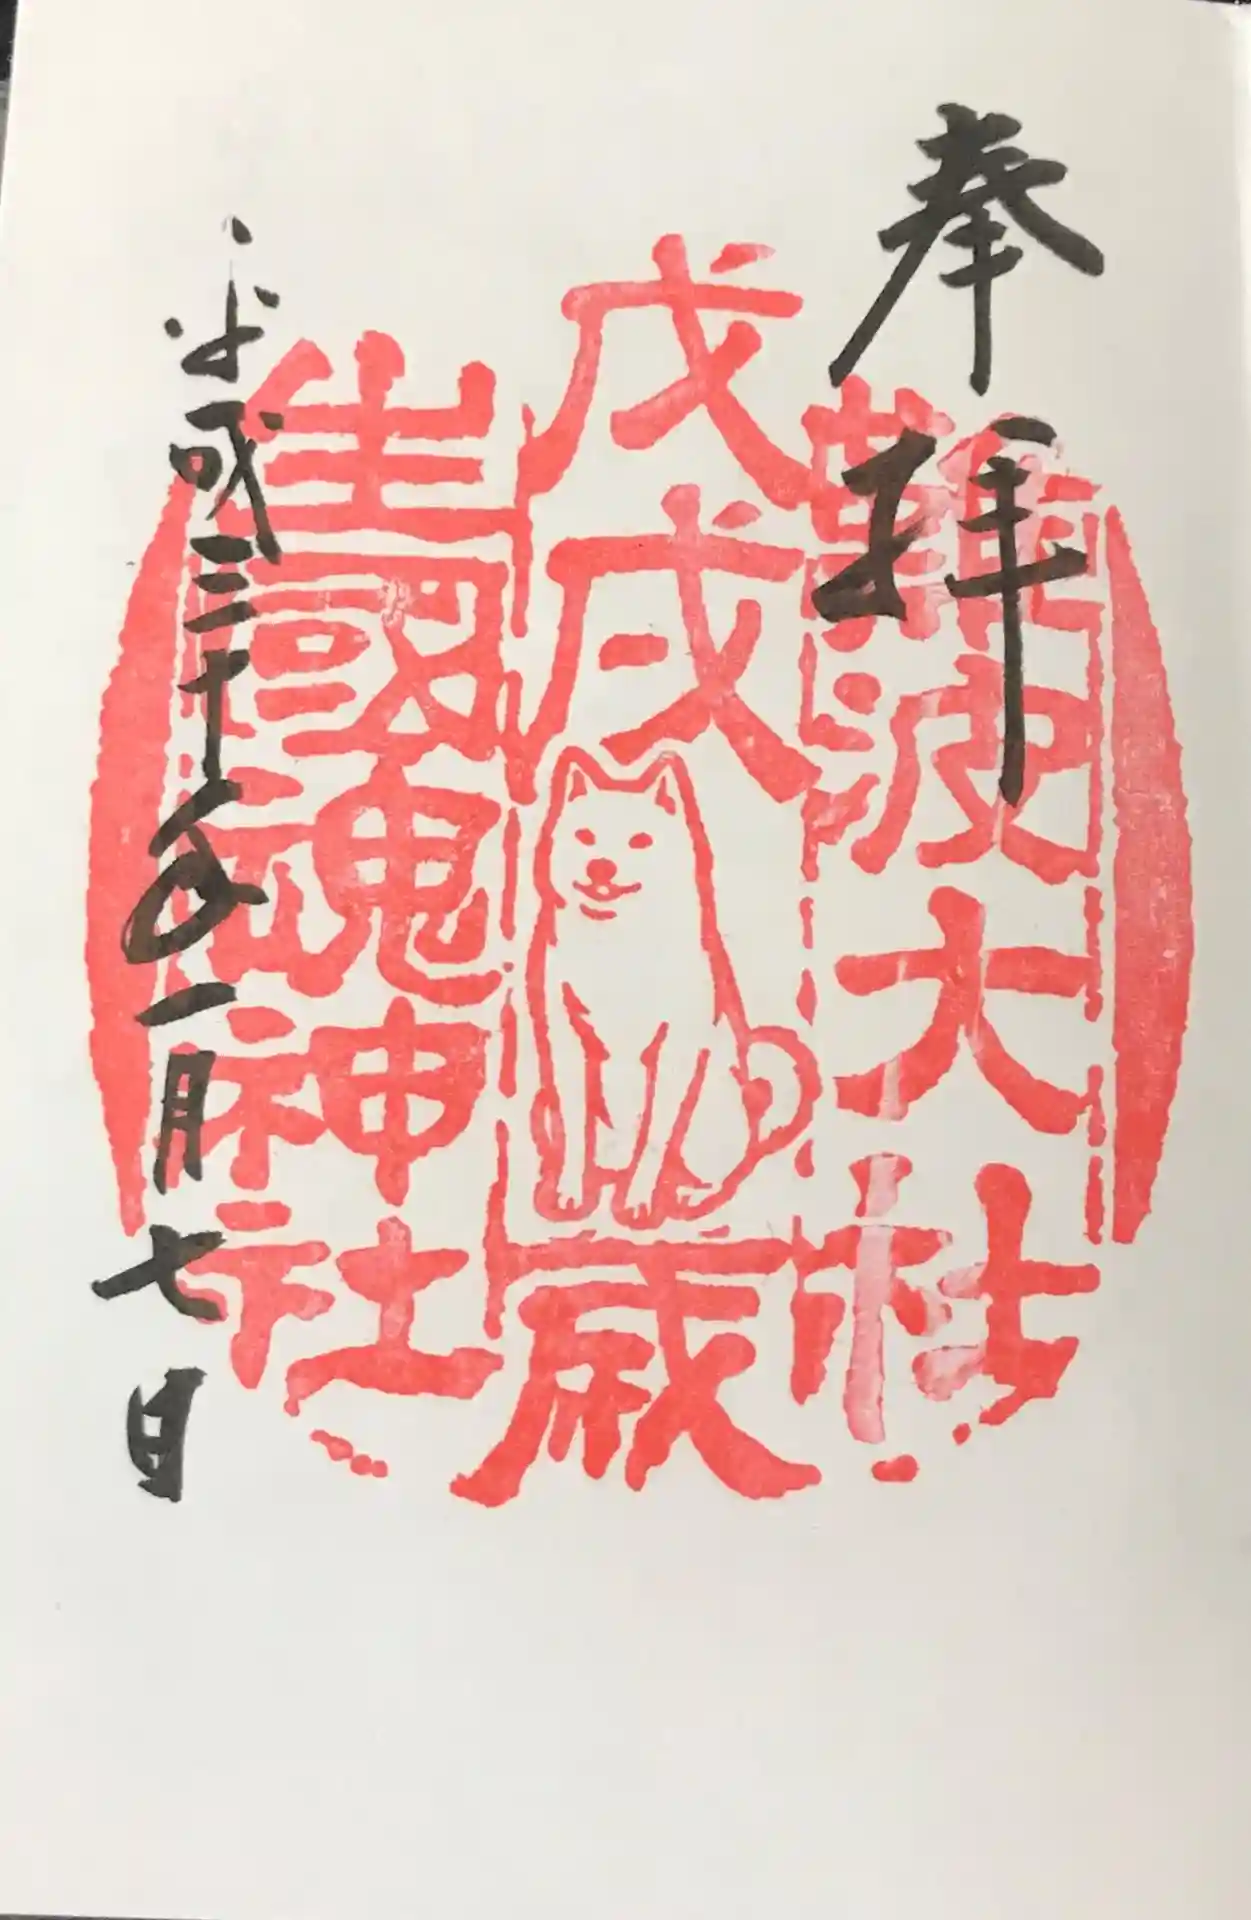 奉拜
難波大社
戊戌歳
生國魂神社
平成三十年一月七日